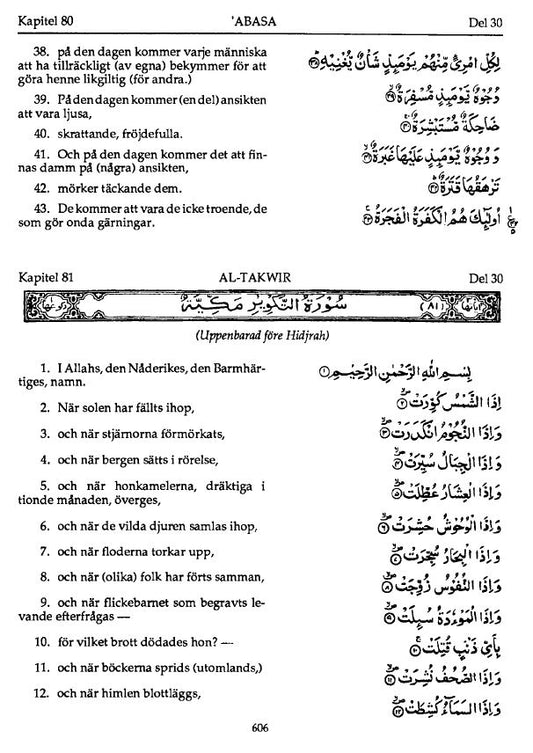 Kapitel 80 'ABASA Del 30
38. på den dagen kommer varje människa
att ha tillräckligt (av egna) bekymmer för att
göra henne likgiltig (för andra.)
لِكُلِّ امْرِئٍ مِّنْهُمْ يَوْمَئِذٍ شَأْنٌ يُّغْنِيْهِ ۝۳۸
39. På den dagen kommer (en del) ansikten
att vara ljusa,
وُجُوْهٌ يَّوْمَئِذٍ مُّسْفِرَةٌ ۝۳۹
40. skrattande, fröjdefulla.
ضَاحِكَةٌ مُّسْتَبْشِرَةٌ ۝۴۰
41. Och på den dagen kommer det att fin-
nas damm på (några) ansikten,
وَ وُجُوْهٌ يَّوْمَئِذٍ عَلَيْهَا غَبَرَةٌ ۝۴۱
42. mörker täckande dem.
تَرْهَقُهَا قَتَرَةٌ ۝۴۲
43. De kommer att vara de icke troende, de
som gör onda gärningar.
اُولٰٓئِكَ هُمُ الْكَفَرَةُ الْفَجَرَةُ ۝۴۳
Kapitel 81 AL-TAKWIR Del 30
سُوْرَةُ التَّكْوِيْرِ مَكِّيَّةٌ
(Uppenbarad före Hidjrah)
1. I Allahs, den Nåderikes, den Barmhär-
tiges, namn.
بِسْمِ اللهِ الرَّحْمٰنِ الرَّحِيْمِ ۝۱
2. När solen har fällts ihop,
اِذَا الشَّمْسُ كُوِّرَتْ ۝۲
3. och när stjärnorna förmörkats,
وَاِذَا النُّجُوْمُ انْكَدَرَتْ ۝۳
4. och när bergen sätts i rörelse,
وَاِذَا الْجِبَالُ سُيِّرَتْ ۝۴
5. och när honkamelerna, dräktiga i
tionde månaden, överges,
وَاِذَا الْعِشَارُ عُطِّلَتْ ۝۵
6. och när de vilda djuren samlas ihop,
وَاِذَا الْوُحُوْشُ حُشِرَتْ ۝۶
7. och när floderna torkar upp,
وَاِذَا الْبِحَارُ سُجِّرَتْ ۝۷
8. och när (olika) folk har förts samman,
وَاِذَا النُّفُوْسُ زُوِّجَتْ ۝۸
9. och när flickebarnet som begravts le-
vande efterfrågas —
وَاِذَا الْمَوْءٗدَةُ سُئِلَتْ ۝۹
10. för vilket brott dödades hon? —
بِاَيِّ ذَنْۢبٍ قُتِلَتْ ۝۱۰
11. och när böckerna sprids (utomlands,)
وَاِذَا الصُّحُفُ نُشِرَتْ ۝۱۱
12. och när himlen blottläggs,
وَاِذَا السَّمَآءُ كُشِطَتْ ۝۱۲
606